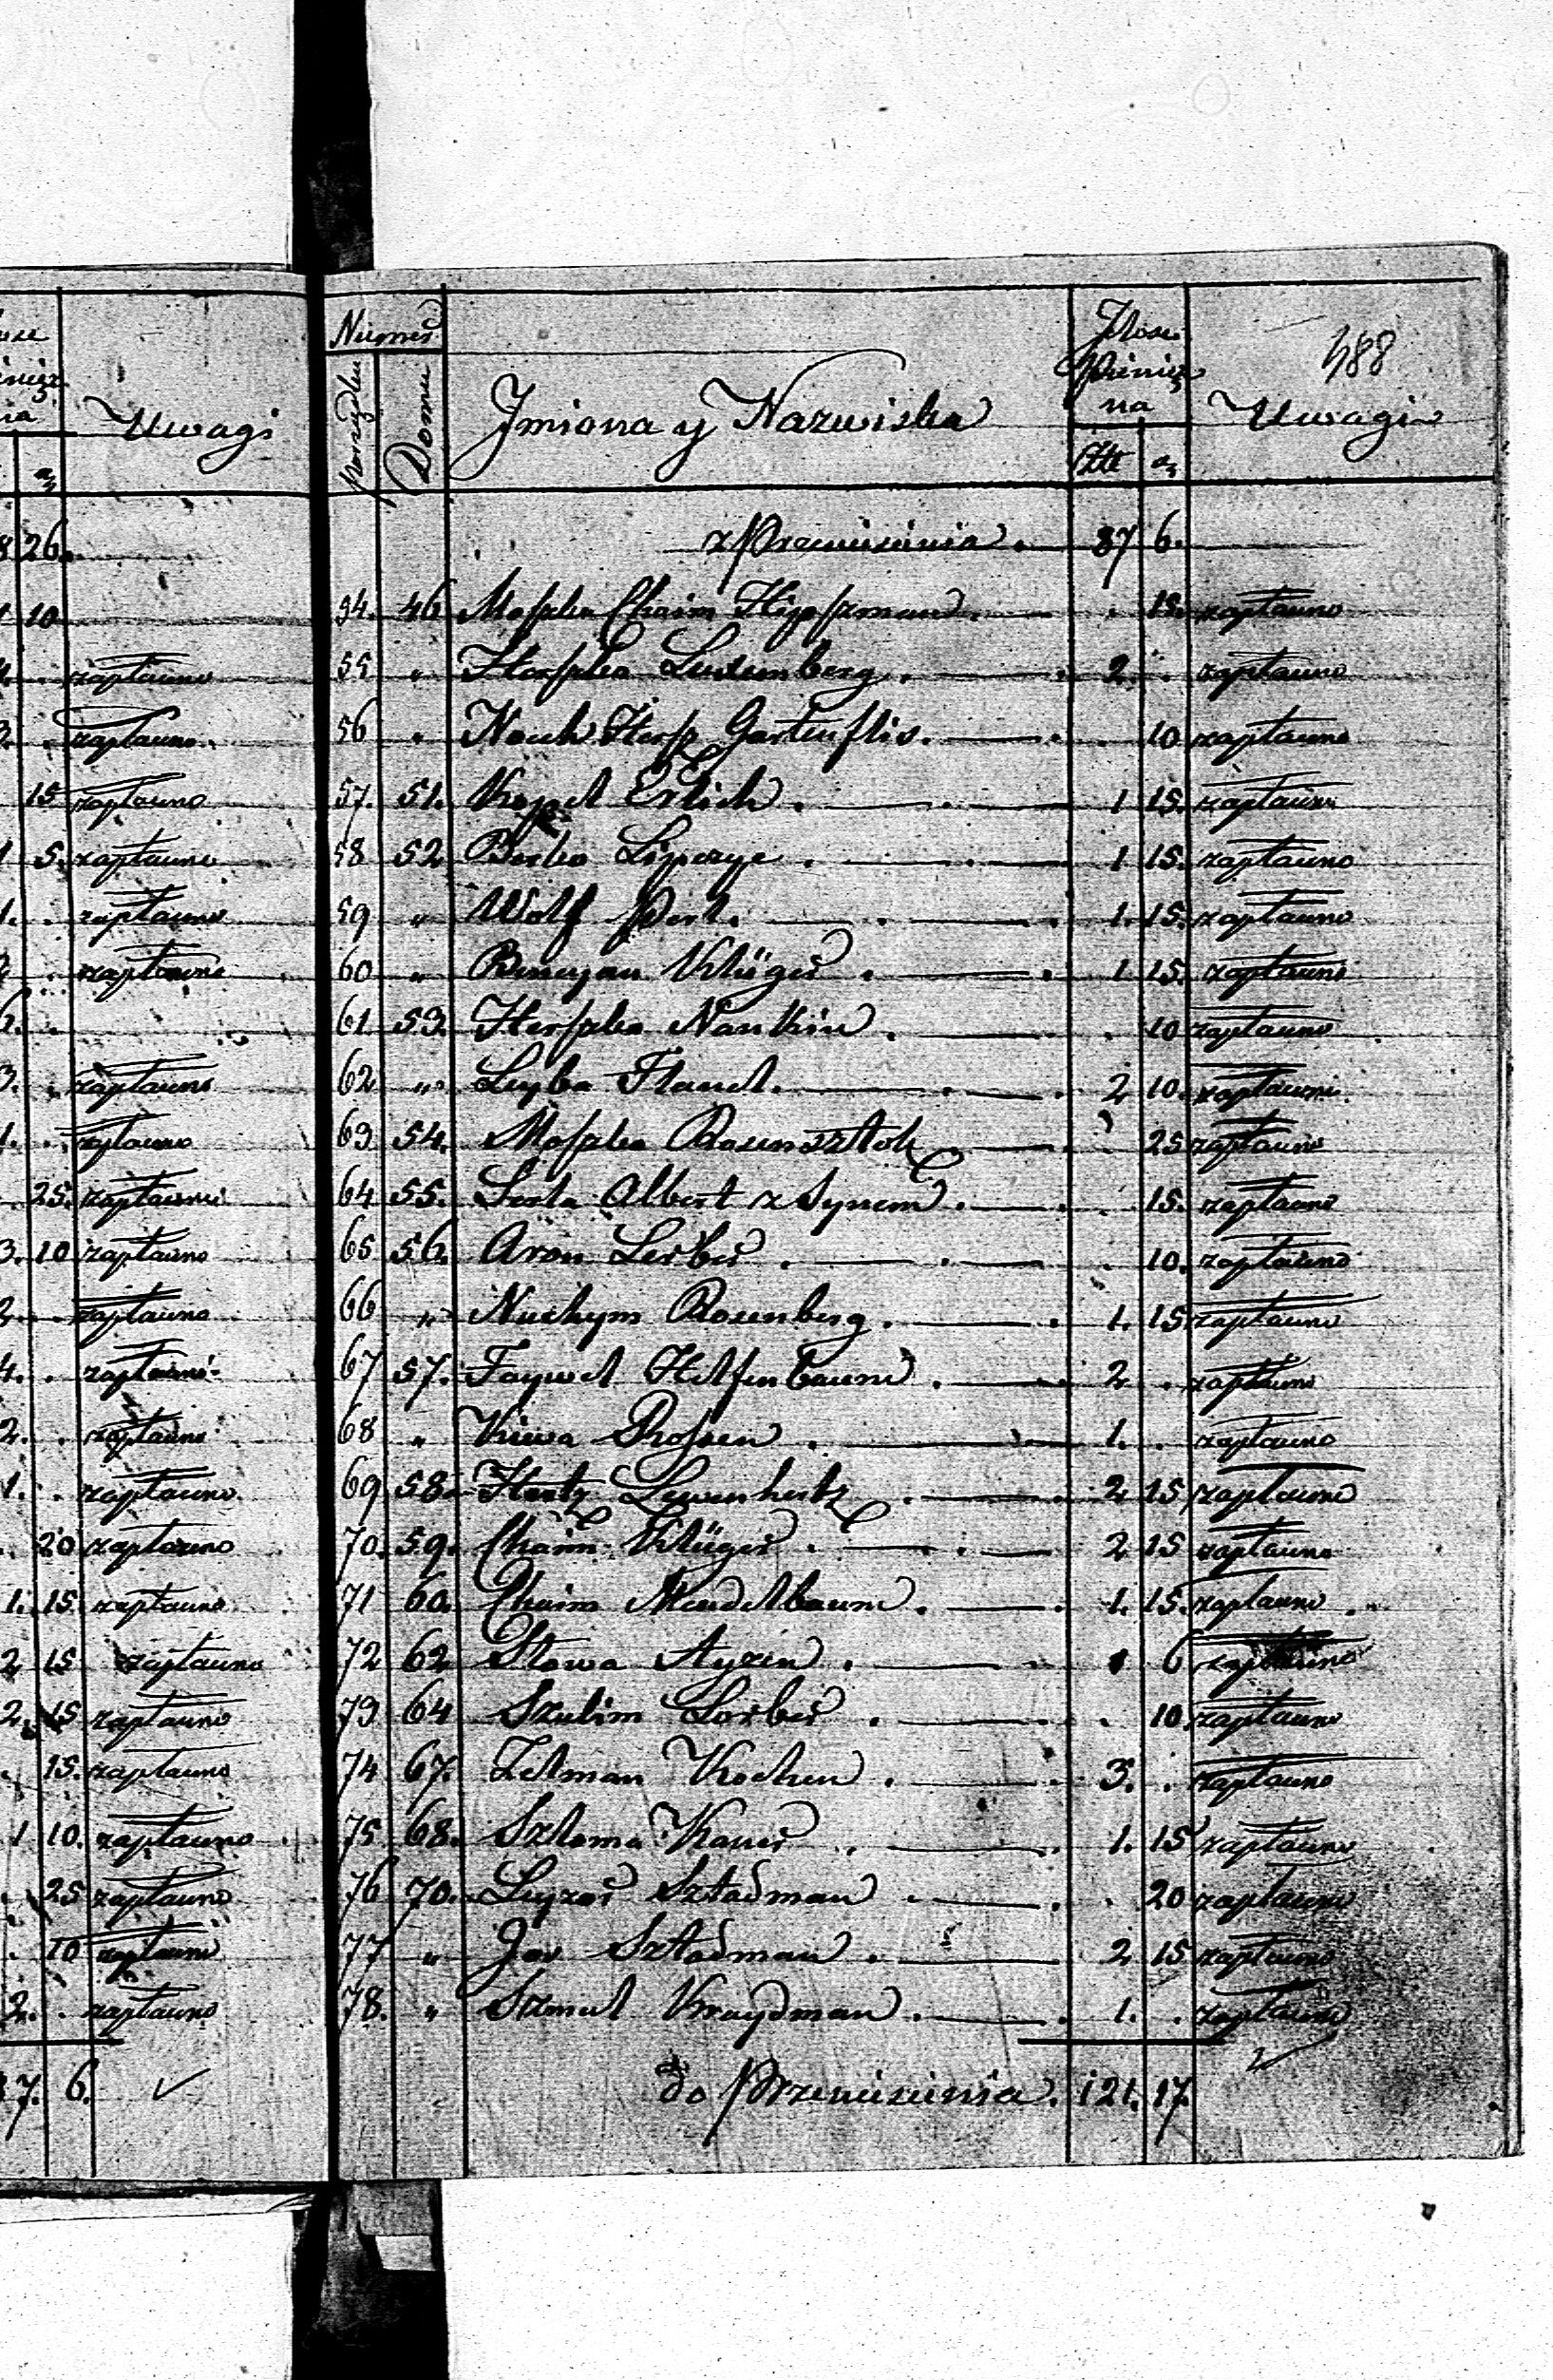 Uwagi
26.
10
zapłacono
zapłacono
15 zapłacono
5. zapłacono
1. . zapłacono
zapłacono
3. . zapłacono
1. . zapłacono
25. zapłacono
3. 10 zapłacono
2. . zapłacono
4. . zapłacono
2. . zapłacono
1. . zapłacono
20 zapłacono
1. 15. zapłacono
2 15 zapłacono
2. 15 zapłacono
15. zapłacono
1 10. zapłacono
25 zapłacono
10 zapłacono
2. . zapłacono
7. 6. ✓
488
Numer
porządku Domu
Jmiona y Nazwiska
Jlość Pieniężna
Złt gr
Uwagi
z Przeniesienia . 87 6.
54. 46 Moszka Chaim Hipszman . 15. zapłacono
55 " Herszka Luxemberg . 2 . zapłacono
56 " Noech Hersz Gartenflis . 10 zapłacono
57. 51. Kopel Erlich . 1 15. zapłacono
58 52 Berko Lipszyc . 1 15. zapłacono
59 " Wolf Perl. 1. 15. zapłacono
60 " Bencyan Klüger . 1. 15. zapłacono
61 53. Herszka Nankin . 10 zapłacono
62 " Leyba Flamel . 2 10. zapłacono
63 54. Moszka Rosensztok 25 zapłacono
64 55. Serla Albert z Synem . 15. zapłacono
65 56. Aron Lerber . 10. zapłacono
66 " Nuchym Rosenberg . 1. 15 zapłacono
67 57. Faywel Helfenbaum . 2 . zapłacono
68 " Kiewa Rossen . 1. . zapłacono
69 58. Hertz Lewenhertz . 2 15 zapłacono
70. 59. Chaim Klüger . 2 15 zapłacono
71 60. Chaim Mendelbaum . 1. 15. zapłacono
72 62 Słowa Ayzen . 6 zapłacono
73 64 Szulim Lorber . 10 zapłacono
74 67. Zelman Kochen . 3. . zapłacono
75 68. Szloma Kaner . 1. 15 zapłacono
76 70. Leyzor Sztadman . 20 zapłacono
77 " Jos Sztadman . 2 15 zapłacono
78. " Szmul Kraydman . 1. . zapłacono
do Przeniesienia . 121. 17.